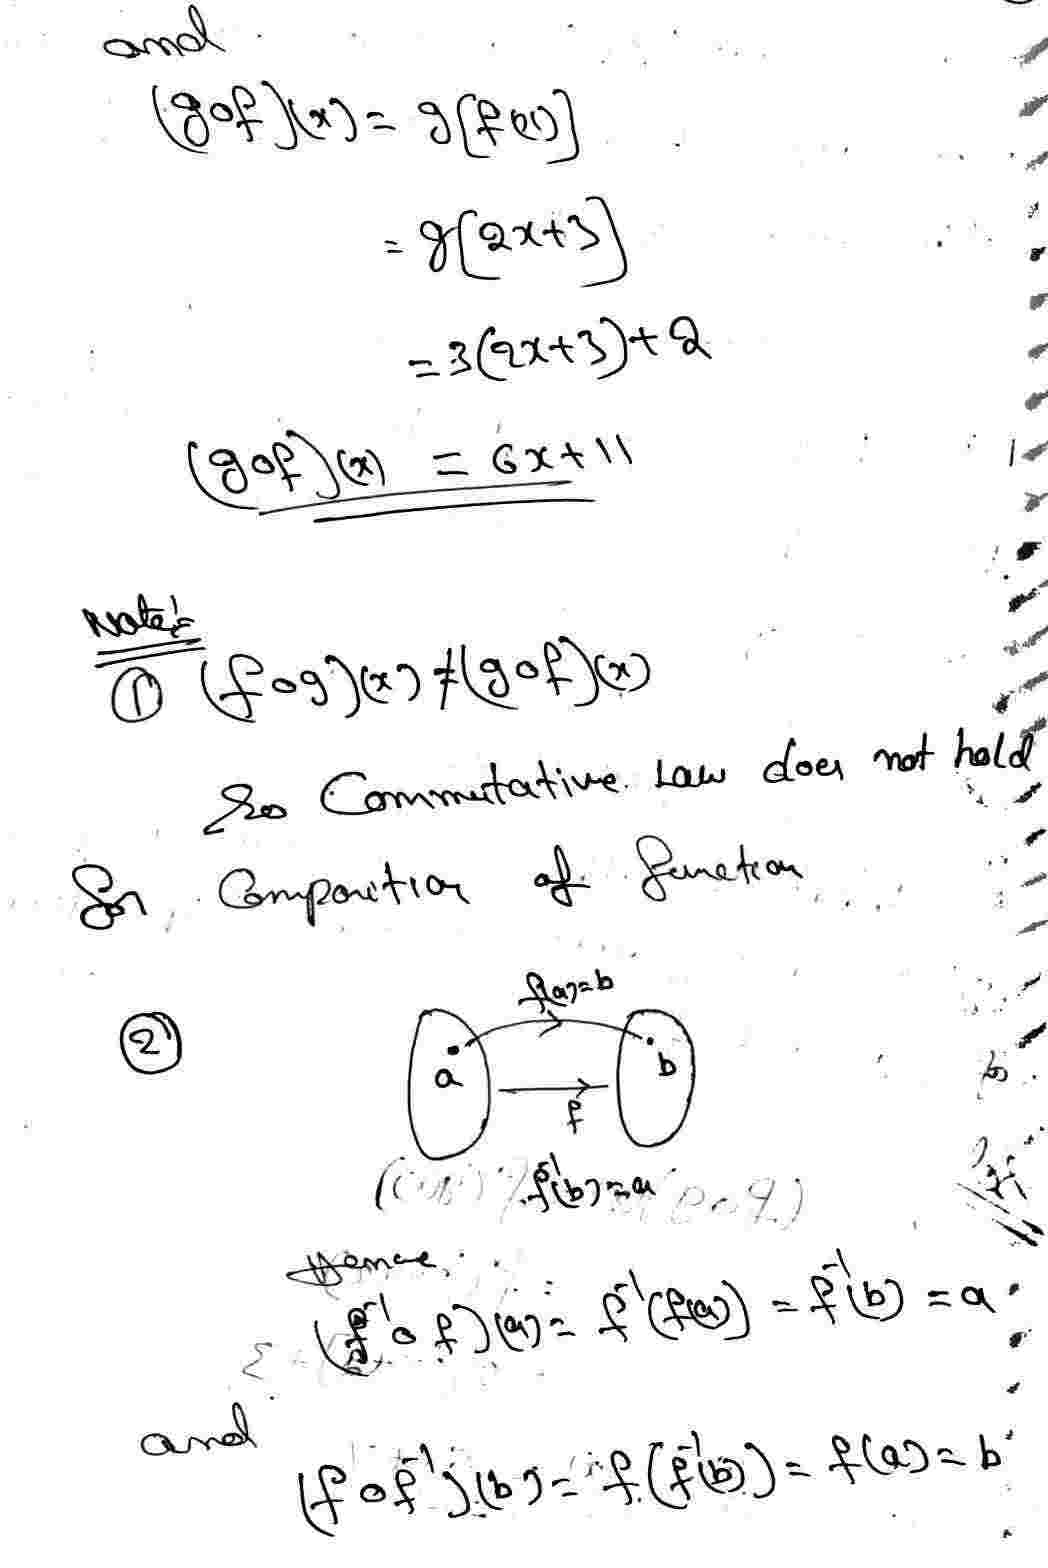 and
(gof)(x) = g[f(x)]
= g[2x+3]
= 3(2x+3)+2
(gof)(x) = 6x+11
Note:
① (fog)(x) ≠ (gof)(x)
So Commutative Law does not hold
for Composition of function
②
f(a)=b
a b
f
f⁻¹(b)=a
Hence
(f⁻¹of)(a) = f⁻¹(f(a)) = f⁻¹(b) = a
and
(fof⁻¹)(b) = f(f⁻¹(b)) = f(a) = b